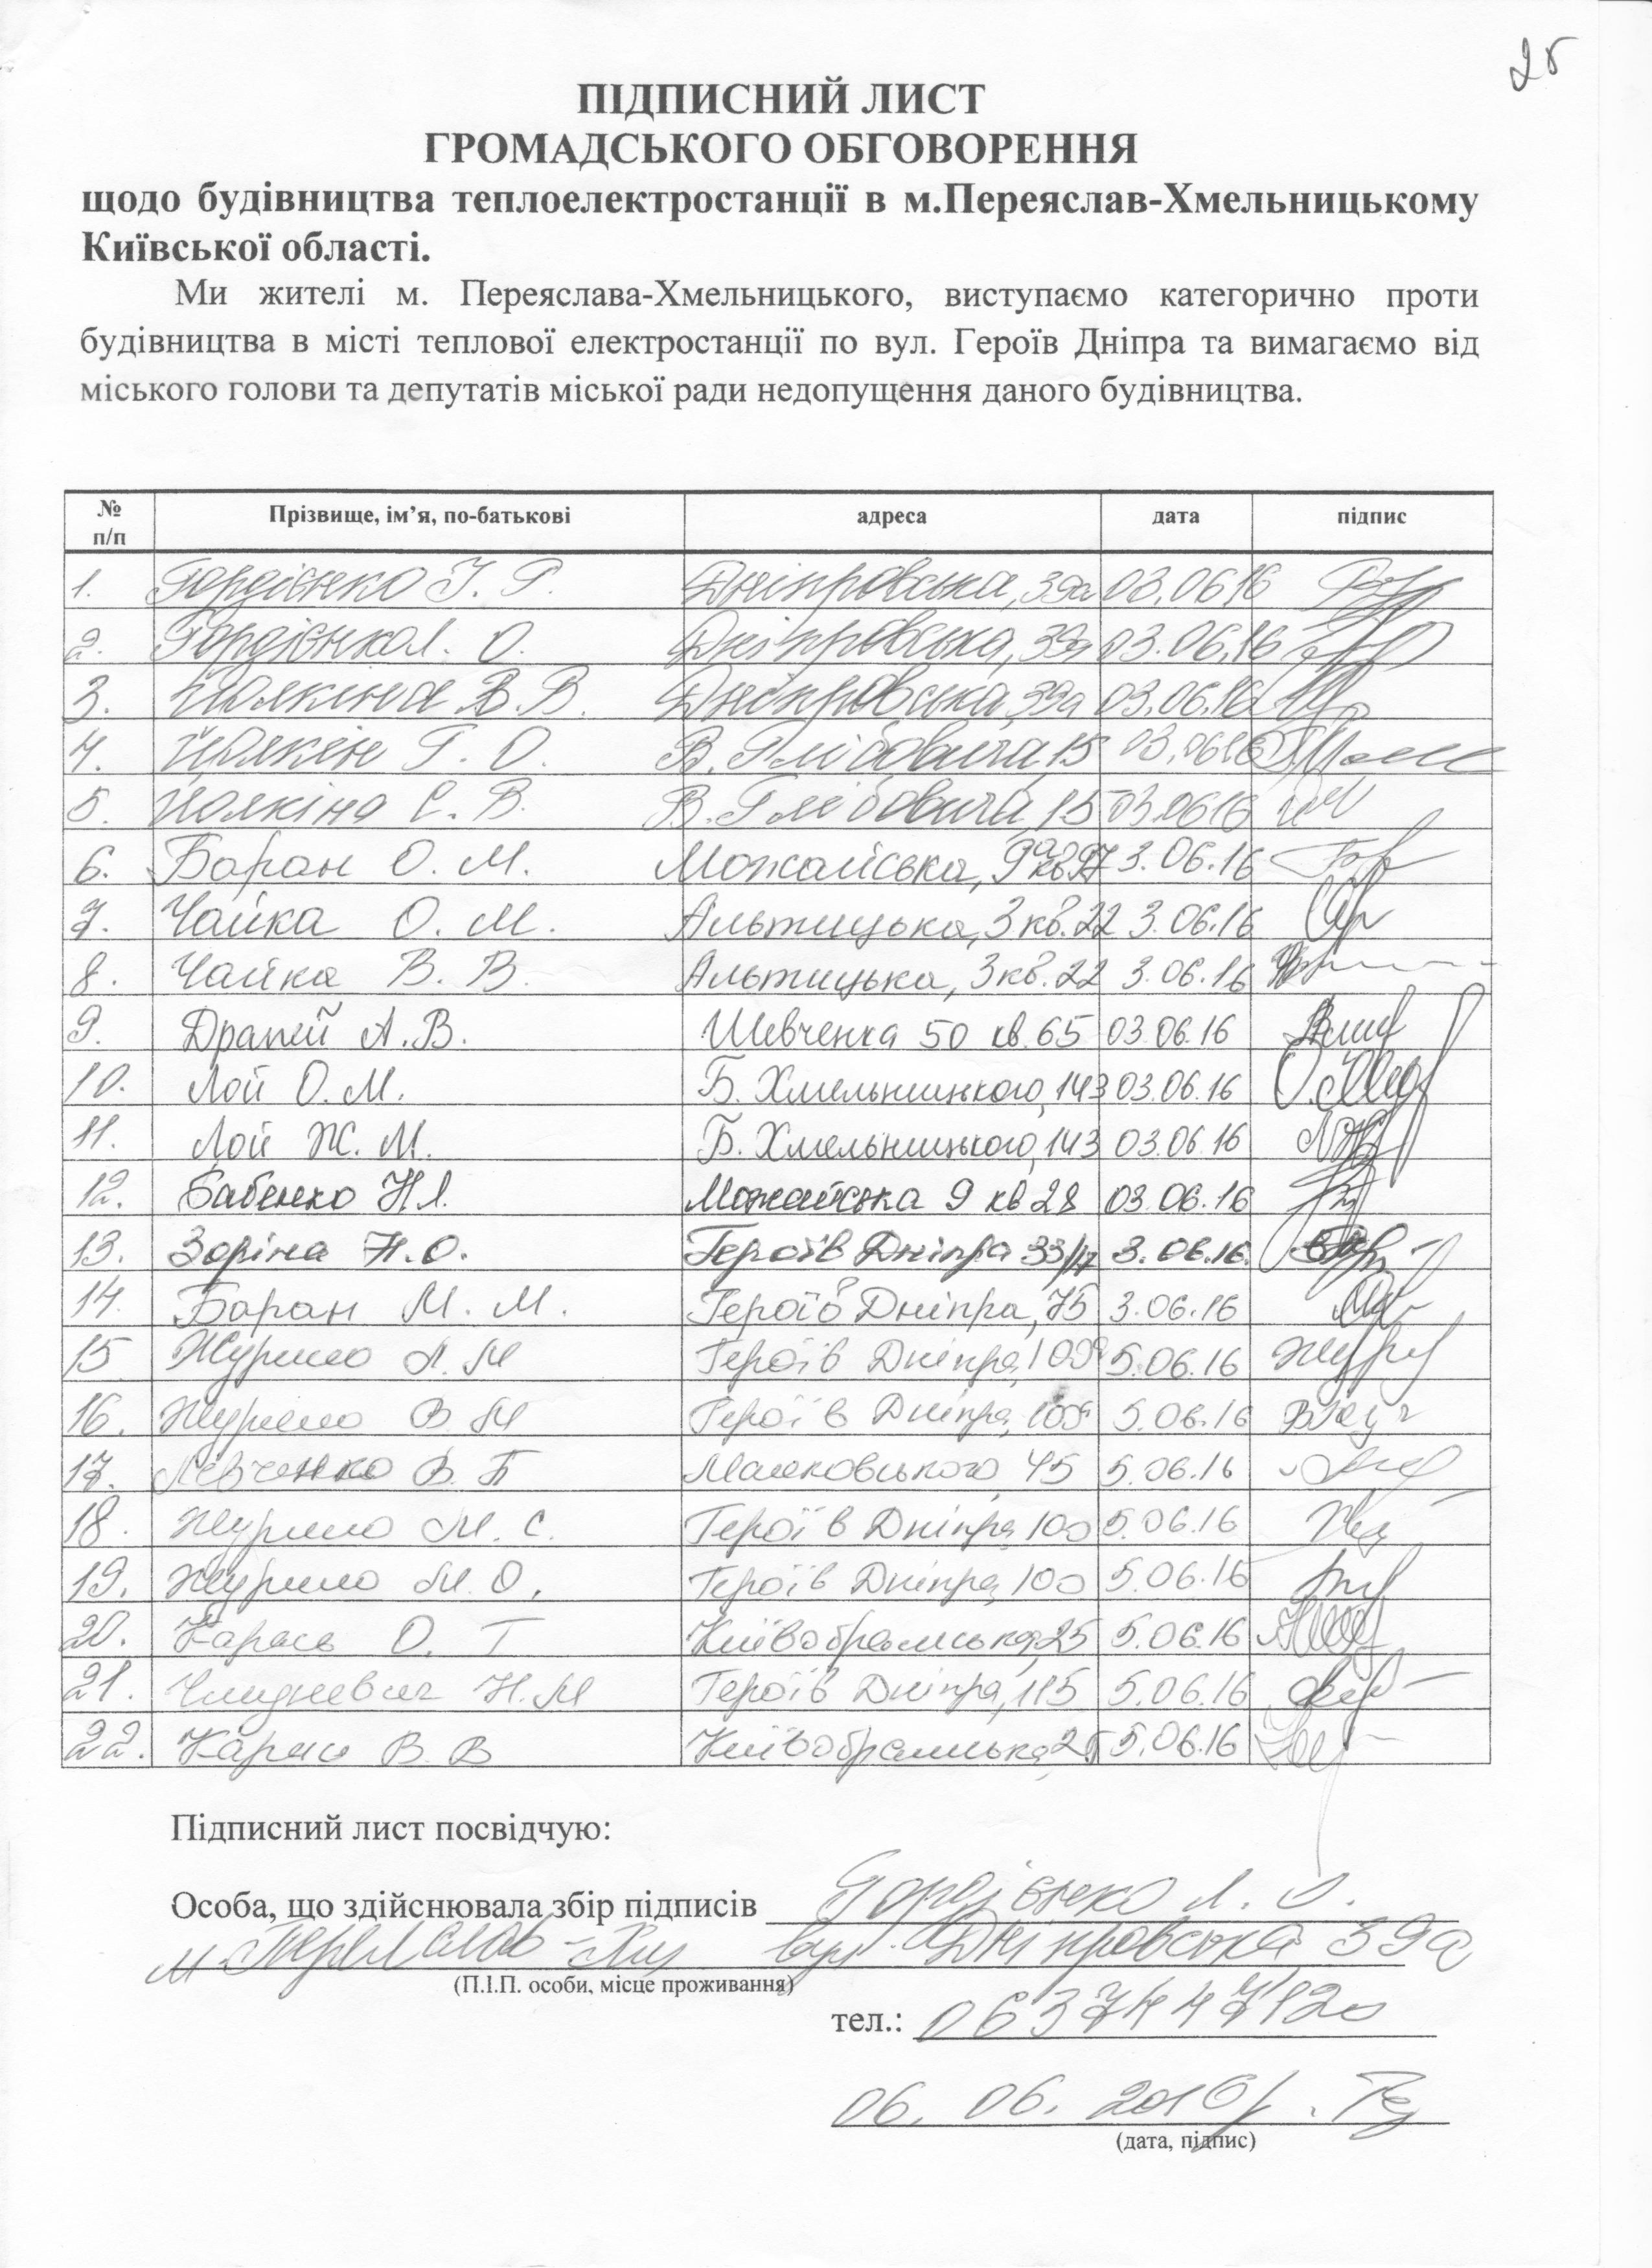 25
ПІДПИСНИЙ ЛИСТ
ГРОМАДСЬКОГО ОБГОВОРЕННЯ
щодо будівництва теплоелектростанції в м.Переяслав-Хмельницькому
Київської області.
Ми жителі м. Переяслава-Хмельницького, виступаємо категорично проти
будівництва в місті теплової електростанції по вул. Героїв Дніпра та вимагаємо від
міського голови та депутатів міської ради недопущення даного будівництва.
№ п/п Прізвище, ім’я, по-батькові адреса дата підпис
1. Гордієнко Дніпровська, 39а 03.06.16
2. Гордієнко Л. О. Дніпровська, 39а 03.06.16
3. В.В. Дніпровська, 39а 03.06.16
4. Г. О. 15 03.06.16
5. С. В. 15 03.06.16
6. Баран О. М. Можайська, 3.06.16
7. Чайка О. М. Альтицька, 3 кв. 22 3.06.16
8. Чайка В. В. Альтицька, 3 кв. 22 3.06.16
9. Драпей А.В. Шевченка 50 кв. 65 03.06.16
10. Лой О.М. Б. Хмельницького, 143 03.06.16
11. Лой Ж. М. Б. Хмельницького, 143 03.06.16
12. Бабенко Н.Я. Можайська 9 кв 28 03.06.16
13. Зоріна Н.О. Героїв Дніпра 33/17 3.06.16.
14. Баран М. М. Героїв Дніпра, 75 3.06.16
15 Героїв Дніпра, 5.06.16
16. В М Героїв Дніпра, 5.06.16
17. Левченко В. П Маяковського, 45 5.06.16
18. М. С. Героїв Дніпра, 100 5.06.16
19. М. О. Героїв Дніпра, 100 5.06.16
20. Карась О. Г Київобрамська, 25 5.06.16
21. Н.М Героїв Дніпра, 115 5.06.16
22. Карась В. В Київобрамська, 25 5.06.16
Підписний лист посвідчую:
Особа, що здійснювала збір підписів Гордієнко Л. О.
м. Переяслав-Хм вул. Дніпровська 39а
(П.І.П. особи, місце проживання)
тел.: 0637447120
06. 06. 2016р.
(дата, підпис)